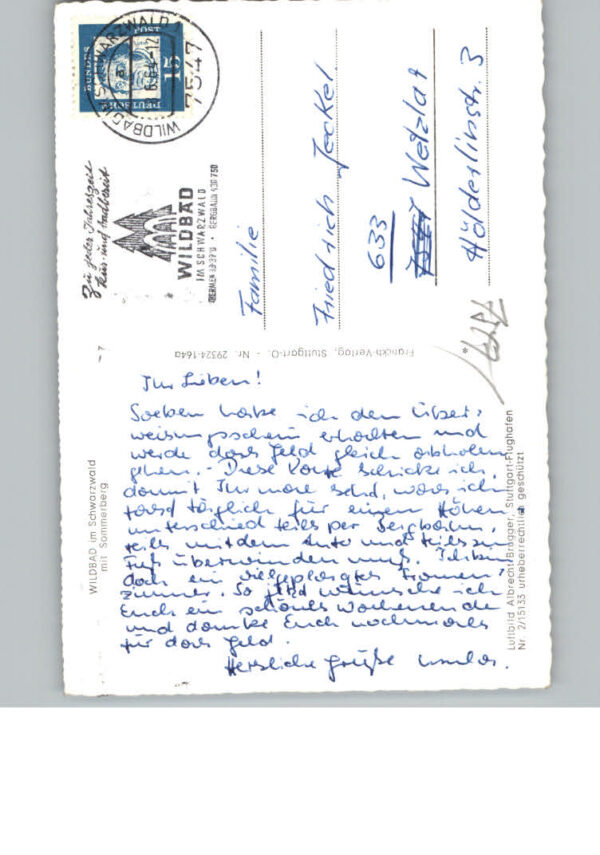 WILDBAD (SCHWARZWALD)
7547
DEUTSCHE BUNDESPOST
15
Zu jeder Jahreszeit
kur- und badbereit
WILDBAD
IM SCHWARZWALD
THERMEN 33-39° · BERGBAHN 430/750
Familie
Friedrich Jeckel
633
Wetzlar
Hölderlinstr. 3
Franckh-Verlag, Stuttgart-O. - Nr. 29324-164a
WILDBAD im Schwarzwald
mit Sommerberg
Luftbild Albrecht Brugger, Stuttgart-Flughafen
Nr. 2/15133 urheberrechtlich geschützt
Ihr Lieben!
Soeben habe ich den Über-
weisungsschein erhalten und
werde das Geld gleich abholen
gehen. - Diese Karte schicke ich,
damit Ihr mal seht, was ich
fast täglich für einen Höhen-
unterschied teils per Bergbahn,
teils mit dem Auto und teils zu
Fuß überwinden muß. Ich bin
doch ein vielgeplagtes Frauen-
zimmer. So jetzt wünsche ich
Euch ein schönes Wochenende
und danke Euch nochmals
für das Geld.
Herzliche Grüße